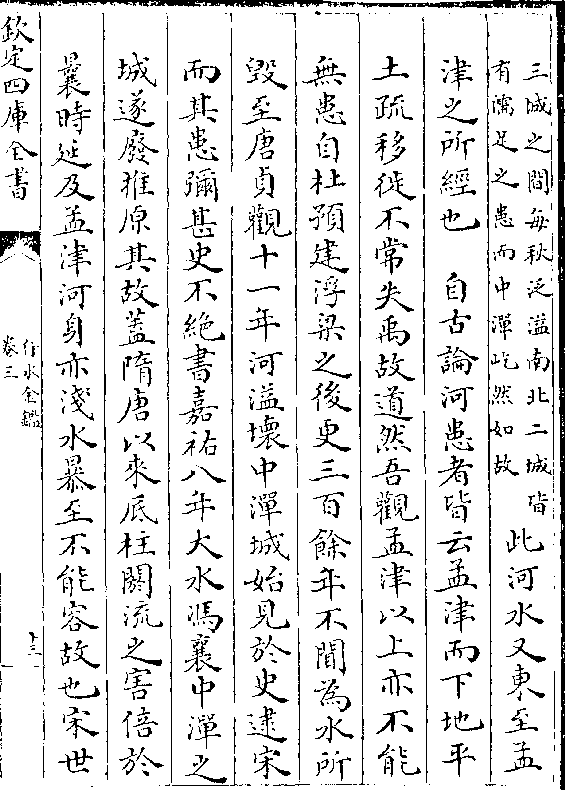 三城之間每秋泛溢南北二城皆
有濡足之患而中潬屹然如故
此河水又東至孟
津之所經也　自古論河患者皆云孟津而下地平
土疏移徙不常失禹故道然吾觀孟津以上亦不能
無患自杜預建浮梁之後更三百餘年不聞為水所
毀至唐貞觀十一年河溢壞中潬城始見於史逮宋
而其患彌甚史不絕書嘉祐八年大水馮襄中潬之
城遂廢推原其故蓋隋唐以來底柱閼流之害倍於
曩時延及孟津河身亦淺水暴至不能容故也宋世
欽定四庫全書
行水金鑑
卷三
十三